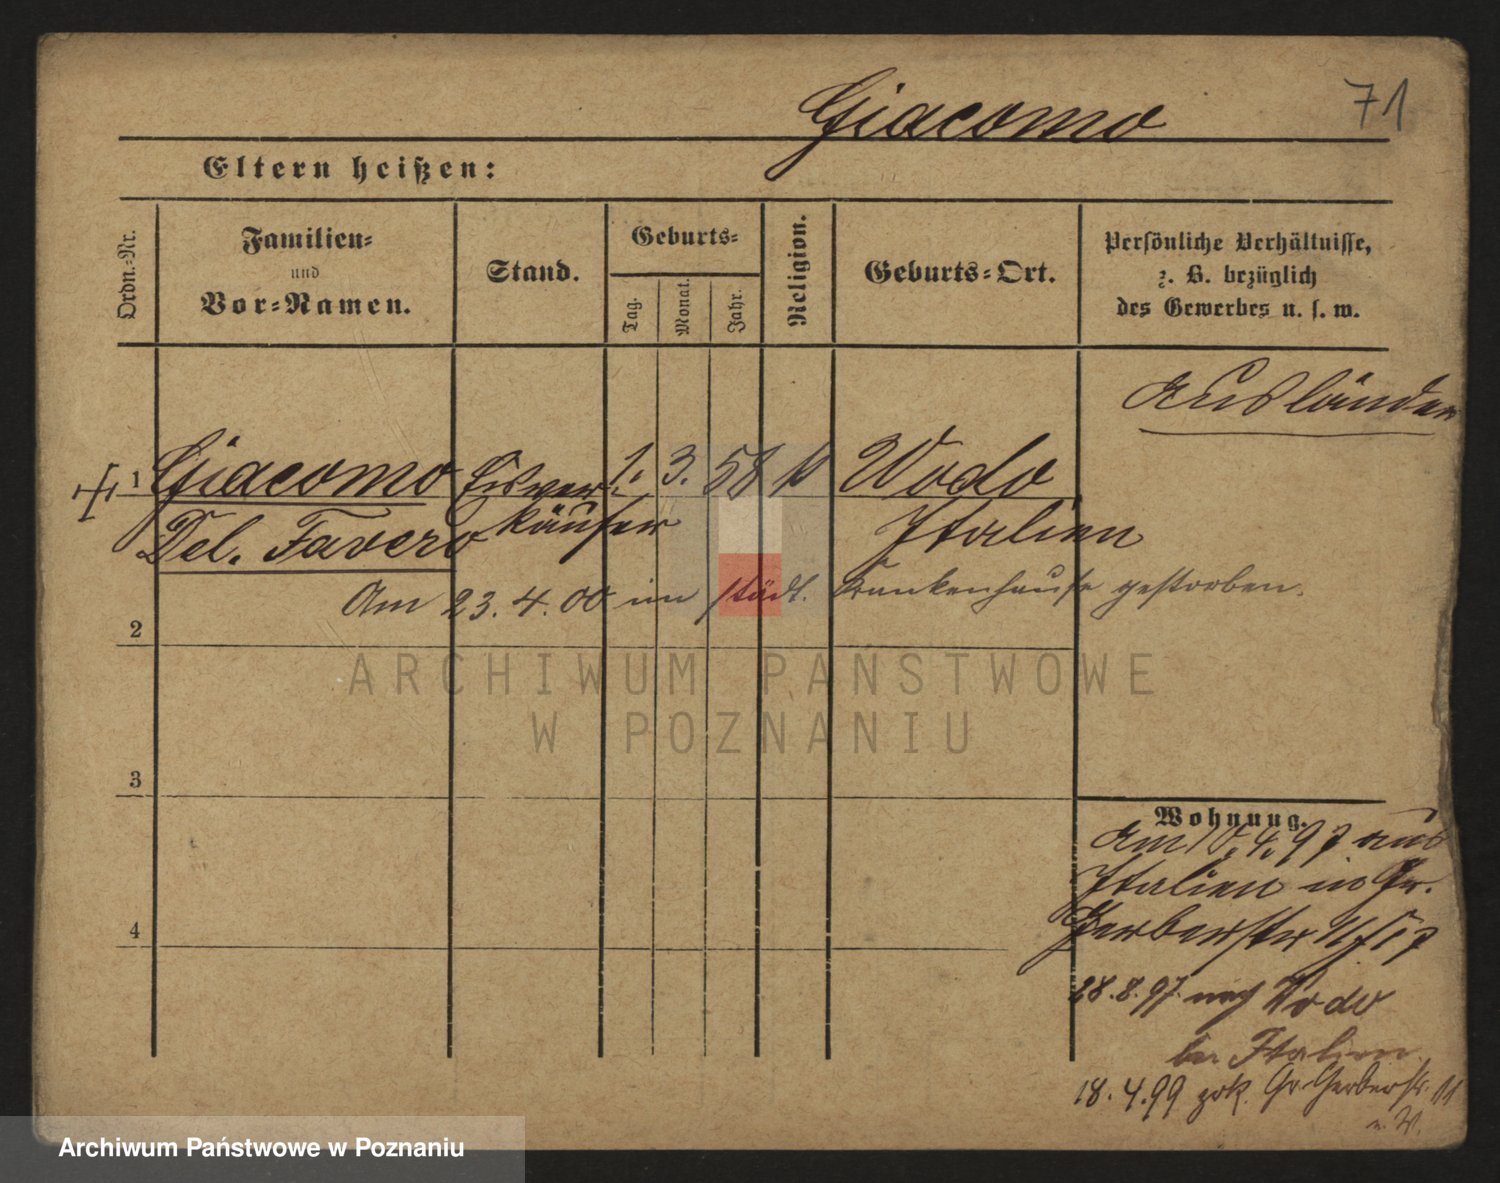 71
Giacomo
Eltern heißen:
Ordn.-Nr.
Familien-
und
Vor-Namen.
Stand.
Geburts-
Tag.
Monat.
Jahr.
Religion.
Geburts-Ort.
Persönliche Verhältnisse,
z. B. bezüglich
des Gewerbes u. s. w.
Ausländer
1 Giacomo Eisver- 1. 3. 58 k Vodo
Del. Favero käufer Italien
Am 23. 4. 00 im städt. Krankenhause gestorben.
2
3
4
Wohnung.
Am 10. 4. 97 aus
Italien in Gr.
Gerberstr
28. 8. 97. nach Vodo
Italien
18. 4. 99 zrk. Gr. Gerberstr. 11
ARCHIWUM PAŃSTWOWE
W POZNANIU
Archiwum Państwowe w Poznaniu